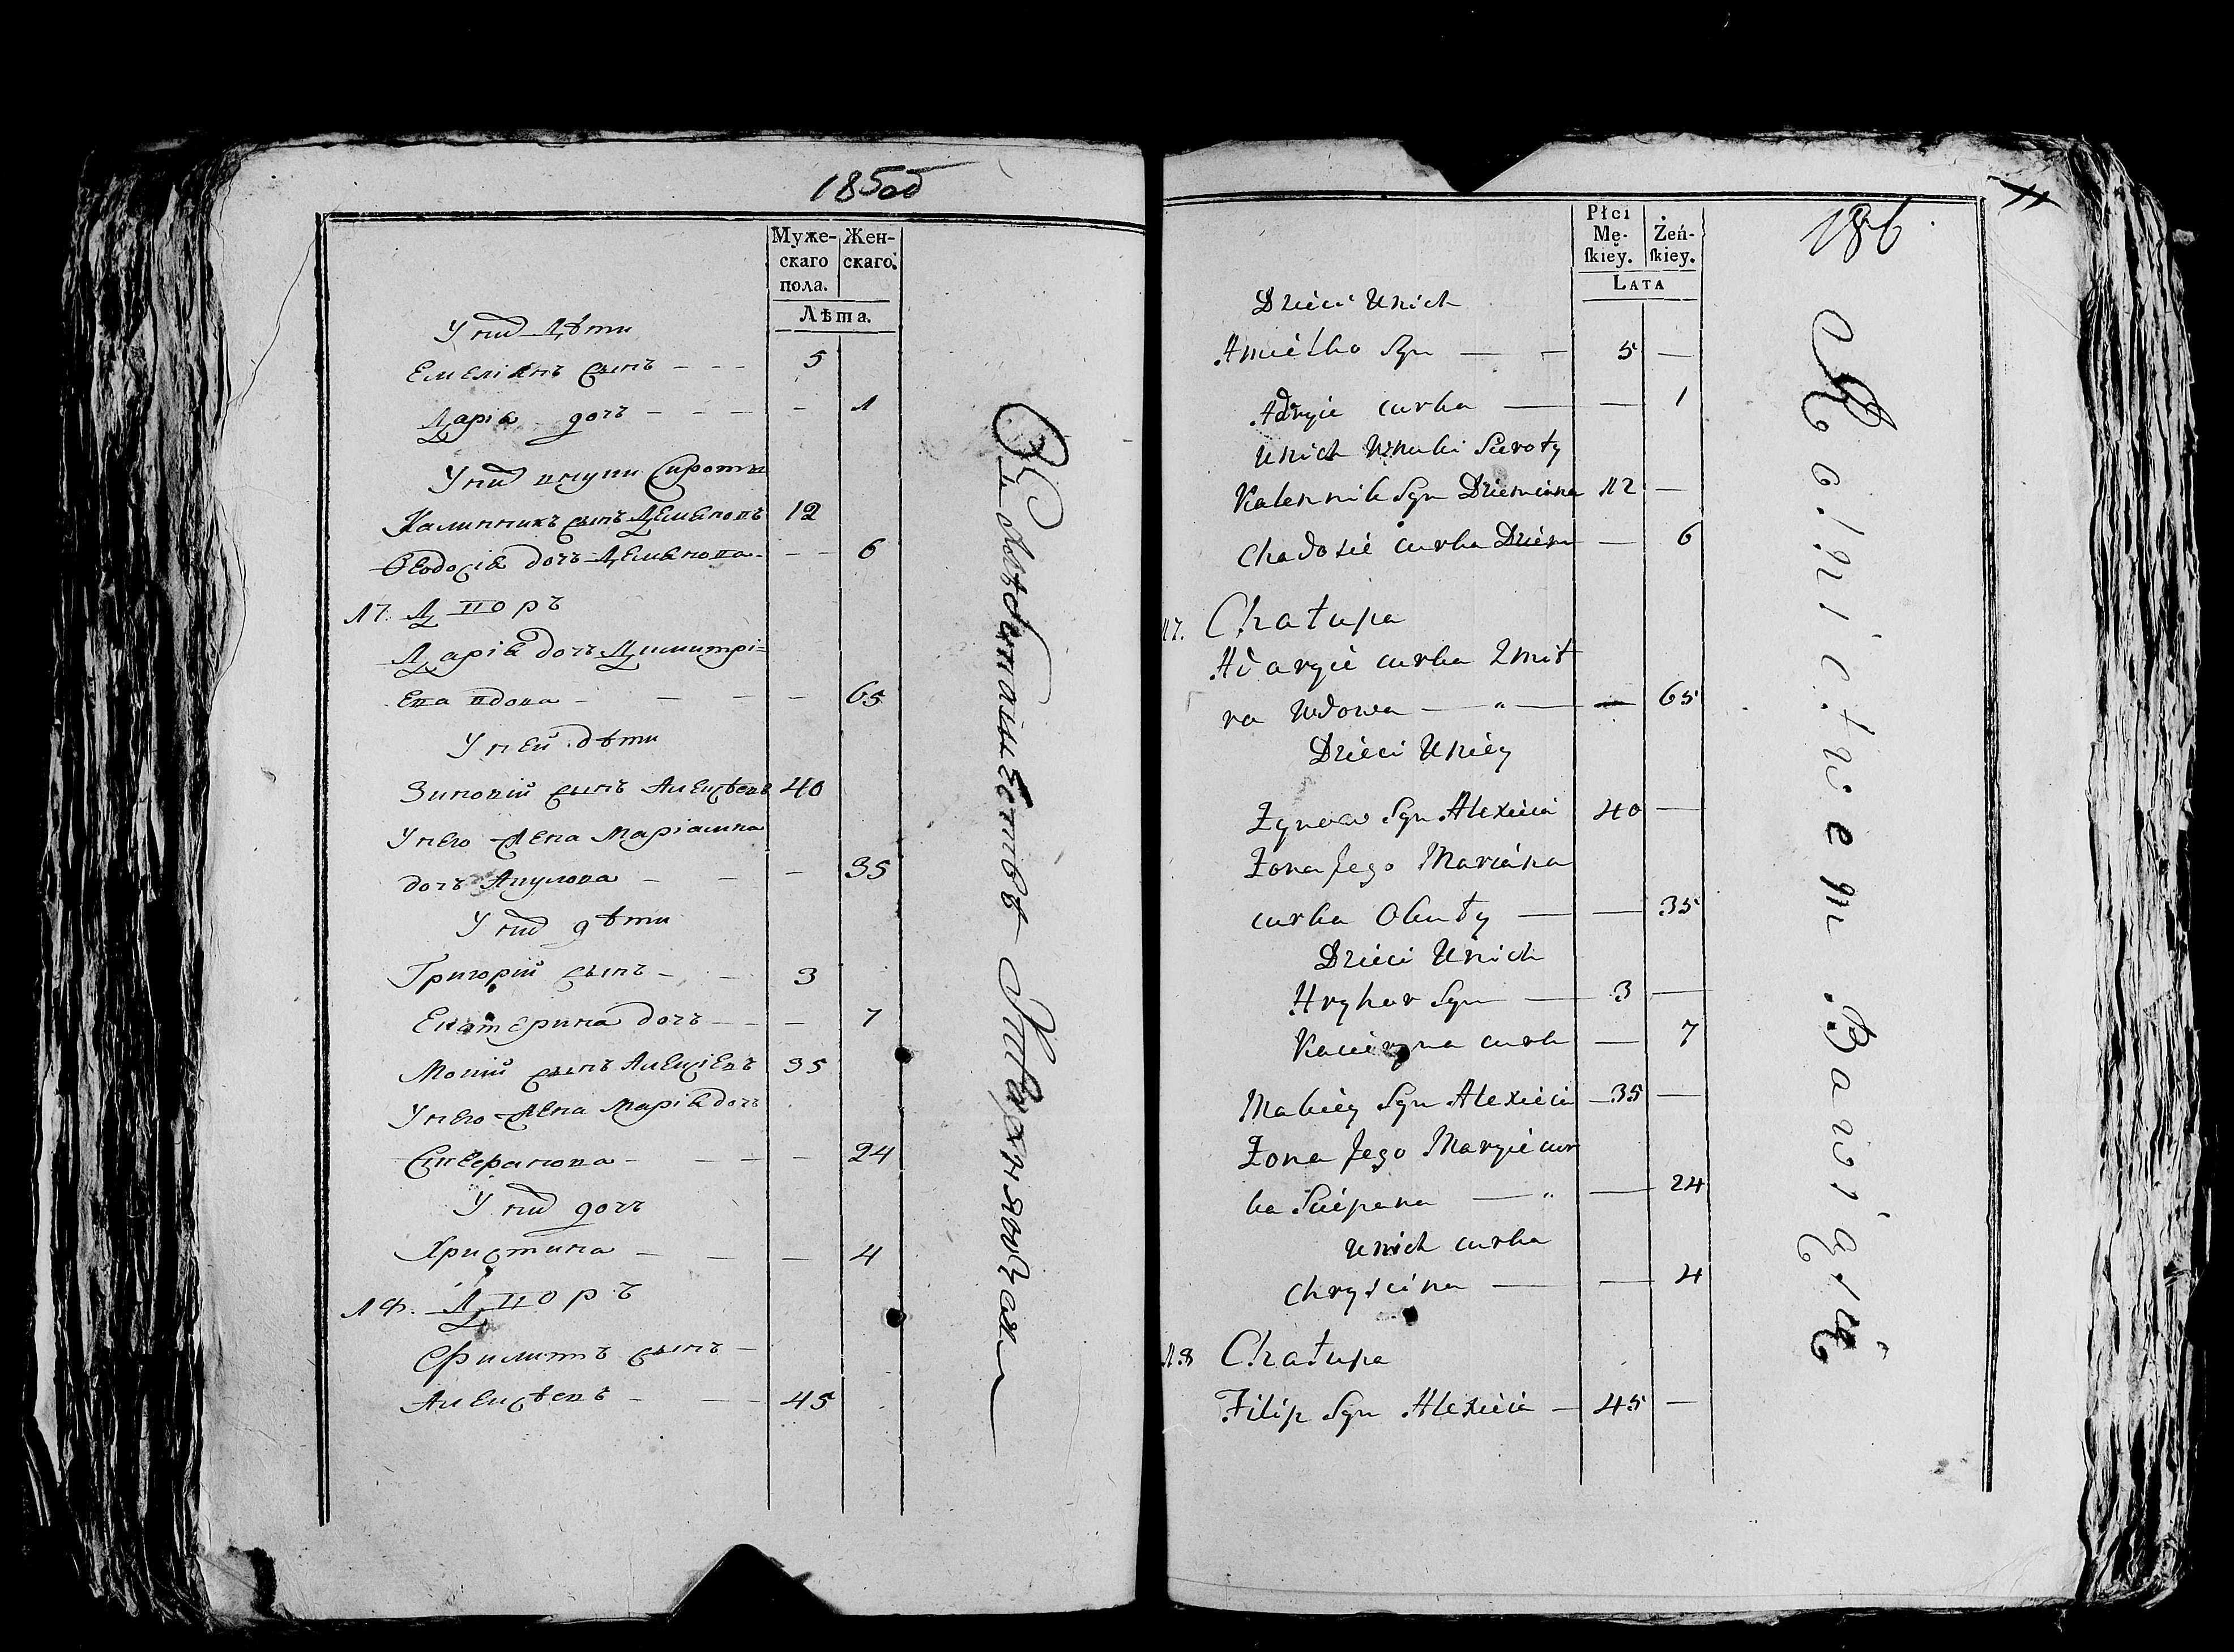 185 об
Муже-
скаго
пола.
Жен-
скаго.
Лѣта.
У них Дѣти
Емеліянъ сынъ - - - 5
Дарія дочь - - - - 1
У них внуки Сироты
Калинникъ сынъ Демяновъ 12
Ѳеодосія дочь Демянова - - - 6
17. Дворъ
Дарія дочь Димитрі=
ева вдова - - - - 65
У ней дѣти
Зиновій сынъ Алексѣевъ 40
У него Жена Маріанна
дочь Акулова - - - 35
У них дѣти
Григорій сынъ - - 3
Екатерина дочь - - - 7
Мокій сынъ Алексіевъ 35
У него Жена Марія дочь
Стефанова - - - - 24
У них дочь
Христина - - - 4
18. Дворъ
Филиппъ сынъ -
Алексѣевъ - - - 45
Płci
Mę-
ſkiey.
Żeń-
ſkiey.
LATA
186
11
Dzieci Unich
Amielko Syn — — 5 —
Adryie curka — — 1
Unich Wnuki Sieroty
Kalennik Syn Dziemiana 12 —
Chadosie curka Dziem — 6
17. Chałupa
Adaryie curka Zmit
ra Wdowa — " — — 65
Dzieci Uniey
Zynow Syn Alexieia 40 —
Żona Jego Mariana
curka Okuły — — 35
Dzieci Unich
Hryhor Syn — 3 —
Kacieryna curk — 7
Makiey Syn Alexieia 35 —
Żona Jego Maryie cur
ka Sciepana — " — 24
Unich curka
Chryscina — — 4
18 Chałupa
Filip Syn Alexieia — 45 —